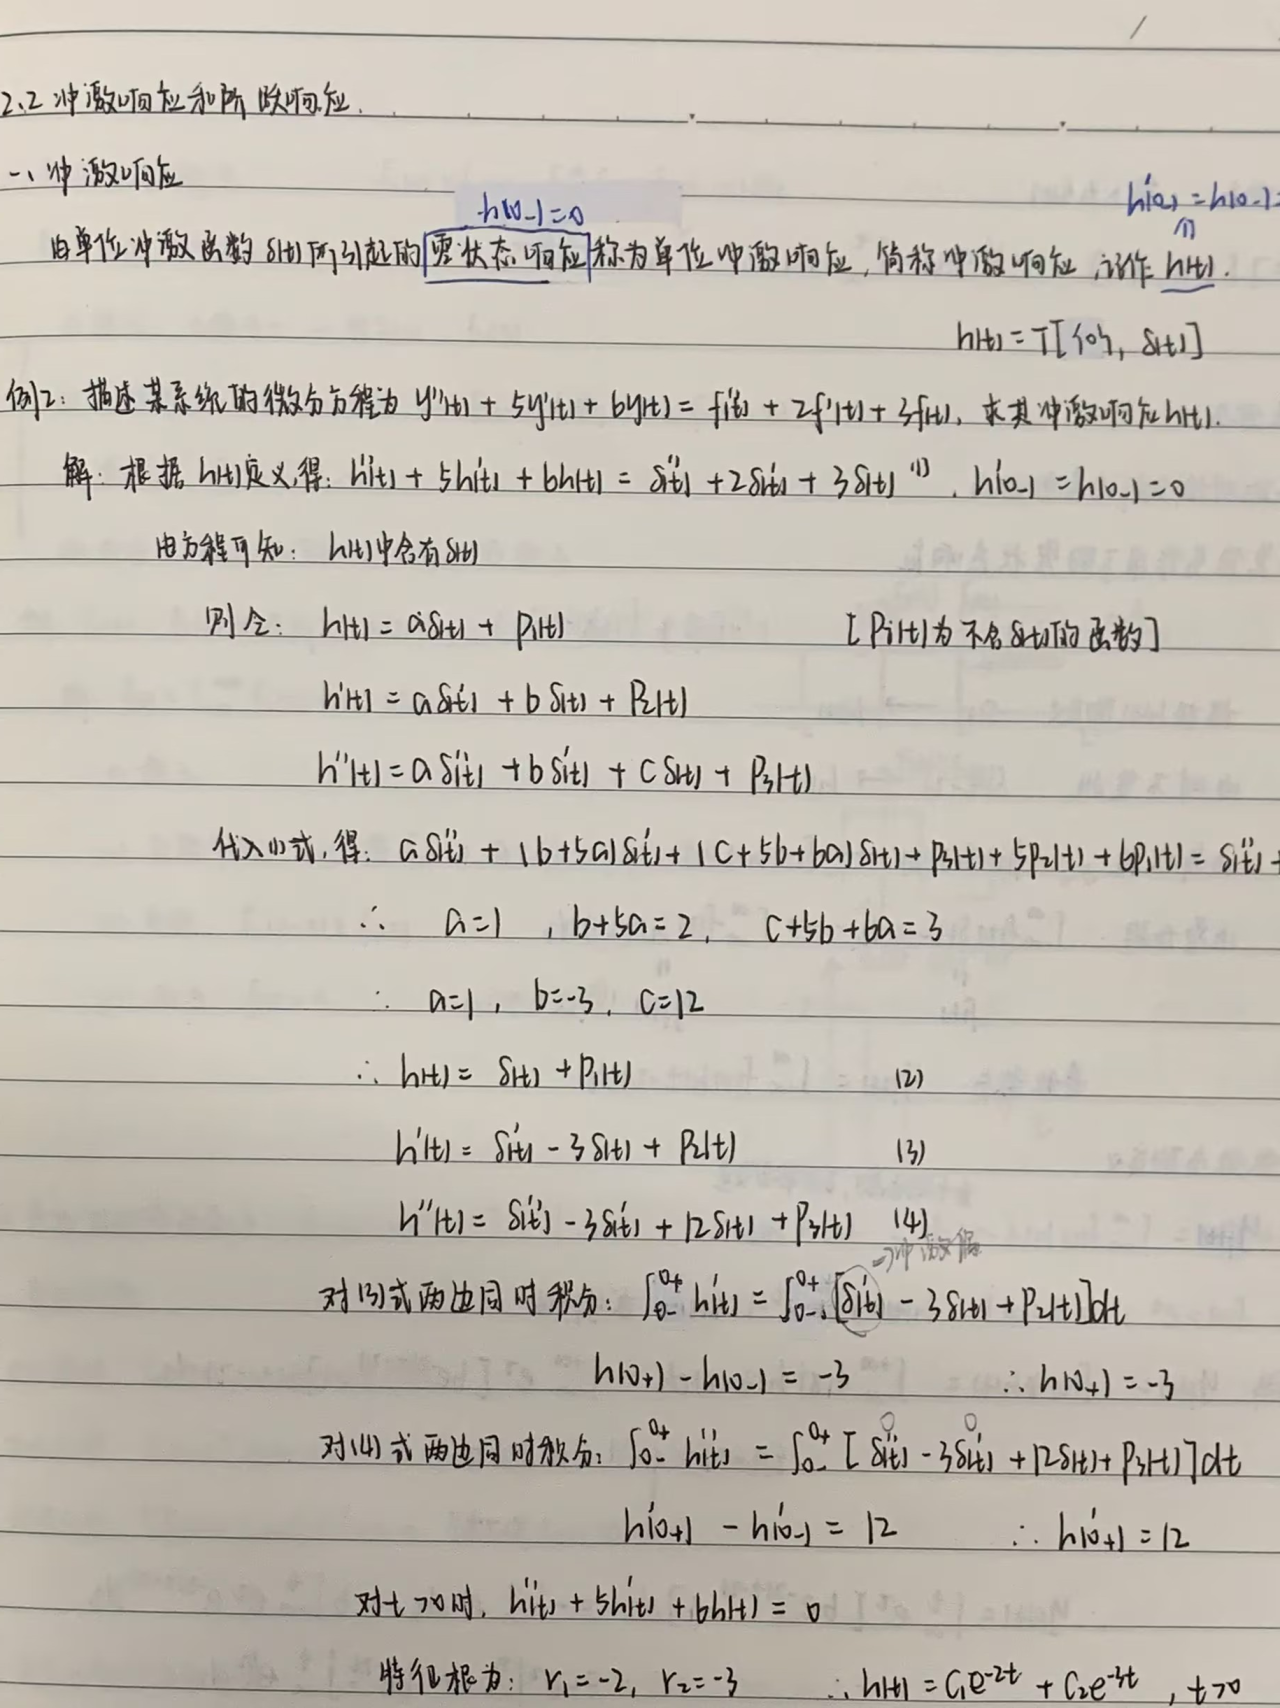 2.2 冲激响应和阶跃响应.
一、冲激响应
h(0-)=0
h'(0-)=h(0-)=
⇑
由单位冲激函数 δ(t) 所引起的 零状态响应 称为单位冲激响应, 简称冲激响应, 记作 h(t).
h(t) = T[{0}, δ(t)]
例2: 描述某系统的微分方程为 y''(t) + 5y'(t) + 6y(t) = f''(t) + 2f'(t) + 3f(t), 求其冲激响应h(t).
解: 根据h(t)定义,得: h''(t) + 5h'(t) + 6h(t) = δ''(t) + 2δ'(t) + 3δ(t) (1) , h'(0-) = h(0-) = 0
由方程可知: h(t)中含有δ(t)
则令: h(t) = aδ(t) + P₁(t) [Pi(t)为不含δ(t)的函数]
h'(t) = aδ'(t) + bδ(t) + P₂(t)
h''(t) = aδ''(t) + bδ'(t) + cδ(t) + P₃(t)
代入(1)式,得: aδ''(t) + (b+5a)δ'(t) + (c+5b+6a)δ(t) + P₃(t) + 5P₂(t) + 6P₁(t) = δ''(t) +
∴ a=1 , b+5a=2, c+5b+6a=3
∴ a=1, b=-3, c=12
∴ h(t) = δ(t) + P₁(t) (2)
h'(t) = δ'(t) - 3δ(t) + P₂(t) (3)
h''(t) = δ''(t) - 3δ'(t) + 12δ(t) + P₃(t) (4)
→冲激偶
对(3)式两边同时积分: ∫₀₋⁰⁺ h'(t) = ∫₀₋⁰⁺ [δ'(t) - 3δ(t) + P₂(t)]dt
h(0+) - h(0-) = -3 ∴ h(0+) = -3
0 0
对(4)式两边同时积分: ∫₀₋⁰⁺ h''(t) = ∫₀₋⁰⁺ [δ''(t) - 3δ'(t) + 12δ(t) + P₃(t)]dt
h'(0+) - h'(0-) = 12 ∴ h'(0+) = 12
对t>0时, h''(t) + 5h'(t) + 6h(t) = 0
特征根为: r₁=-2, r₂=-3 ∴ h(t) = C₁e⁻²ᵗ + C₂e⁻³ᵗ , t>0